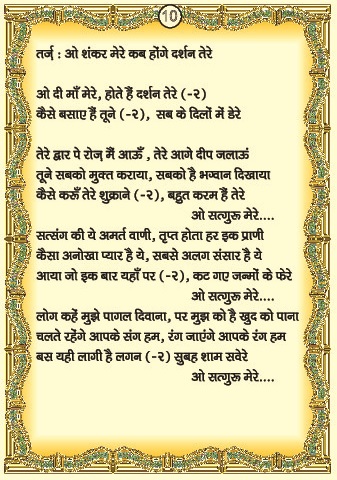 10
तर्ज़ : ओ शंकर मेरे कब होंगे दर्शन तेरे
ओ दी माँ मेरे, होते हैं दर्शन तेरे (-२)
कैसे बसाए हैं तूने (-२), सब के दिलों में डेरे
तेरे द्वार पे रोज़ मैं आऊँ , तेरे आगे दीप जलाऊं
तूने सबको मुक्त कराया, सबको है भगवान दिखाया
कैसे करूँ तेरे शुक्राने (-२), बहुत करम हैं तेरे
ओ सत्गुरू मेरे....
सत्संग की ये अमर्त वाणी, तृप्त होता हर इक प्राणी
कैसा अनोखा प्यार है ये, सबसे अलग संसार है ये
आया जो इक बार यहाँ पर (-२), कट गए जन्मों के फेरे
ओ सत्गुरू मेरे....
लोग कहें मुझे पागल दिवाना, पर मुझ को है खुद को पाना
चलते रहेंगे आपके संग हम, रंग जाएंगे आपके रंग हम
बस यही लागी है लगन (-२) सुबह शाम सवेरे
ओ सत्गुरू मेरे....